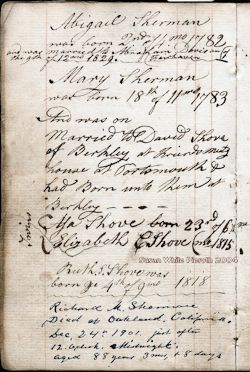 Abigail Sherman
was born 2nd of 1/mo 1782
and was married to Abraham Davis
the 9th of 12mo 1829. Fairhaven
Mary Sherman
was born 18th of 11mo 1783
And was on
Married to David Shove
of Berkley at Friends Meeting
house at Portsmouth &
had Born unto them at
Berkley
Twins
Shove born 23rd of 6mo
Elizabeth Shove 1815
Susan White Pieroth 2004
Ruth S. Shove was
born ye 4th of 9mo 1818
Richard M. Sherman
Died at Oakland, California.
Dec, 24th 1901 just after
12 o'clock, Midnight.
aged 88 years 3 mos, & 8 days